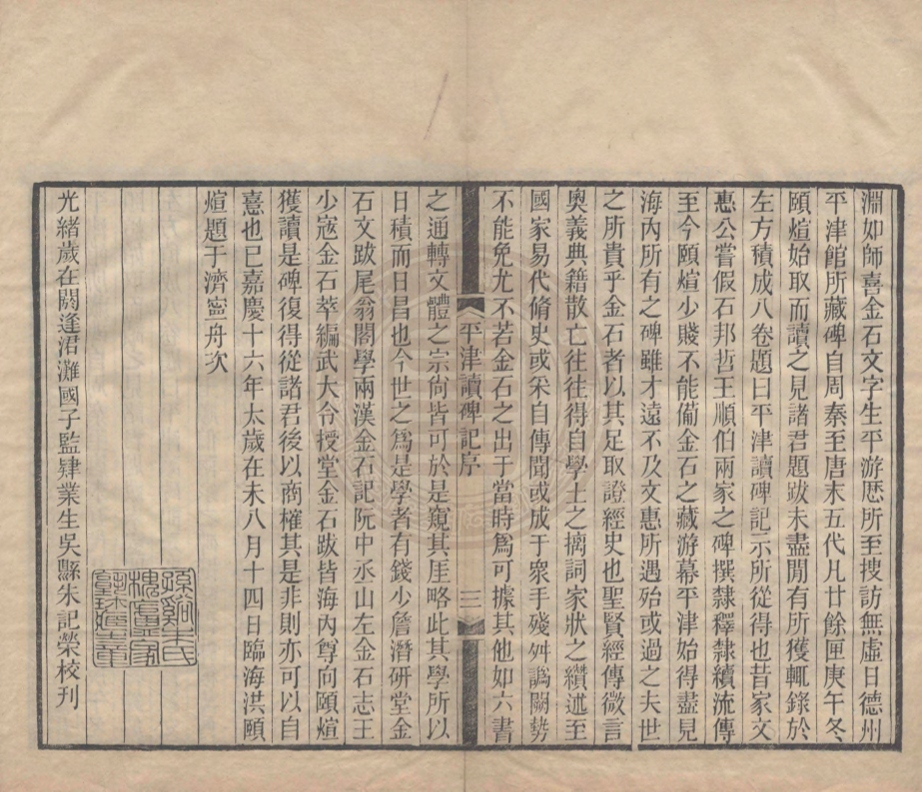 淵如師喜金石文字生平游歷所至搜訪無虛日德州
平津館所藏碑自周秦至唐末五代凡廿餘匣庚午冬
頤煊始取而讀之見諸君題跋未盡閒有所獲輒錄於
左方積成八卷題曰平津讀碑記示所從得也昔家文
惠公嘗假石邦哲王順伯兩家之碑撰隸釋隸續流傳
至今頤煊少賤不能備金石之藏游幕平津始得盡見
海內所有之碑雖才遠不及文惠所遇殆或過之夫世
之所貴乎金石者以其足取證經史也聖賢經傳微言
奧義典籍散亡往往得自學士之摛詞家狀之纘述至
國家易代脩史或采自傳聞或成于衆手殘舛譌闕勢
不能免尤不若金石之出于當時爲可據其他如六書
平津讀碑記序
三
之通轉文體之宗尙皆可於是窺其厓略此其學所以
日積而日昌也今世之爲是學者有錢少詹潛研堂金
石文跋尾翁閣學兩漢金石記阮中丞山左金石志王
少寇金石萃編武大令授堂金石跋皆海內尊向頤煊
獲讀是碑復得從諸君後以商榷其是非則亦可以自
憙也已嘉慶十六年太歲在未八月十四日臨海洪頤
煊題于濟寧舟次
孫谿朱氏
槐廬家
光緒歲在閼逢涒灘國子監肄業生吳縣朱記榮校刊